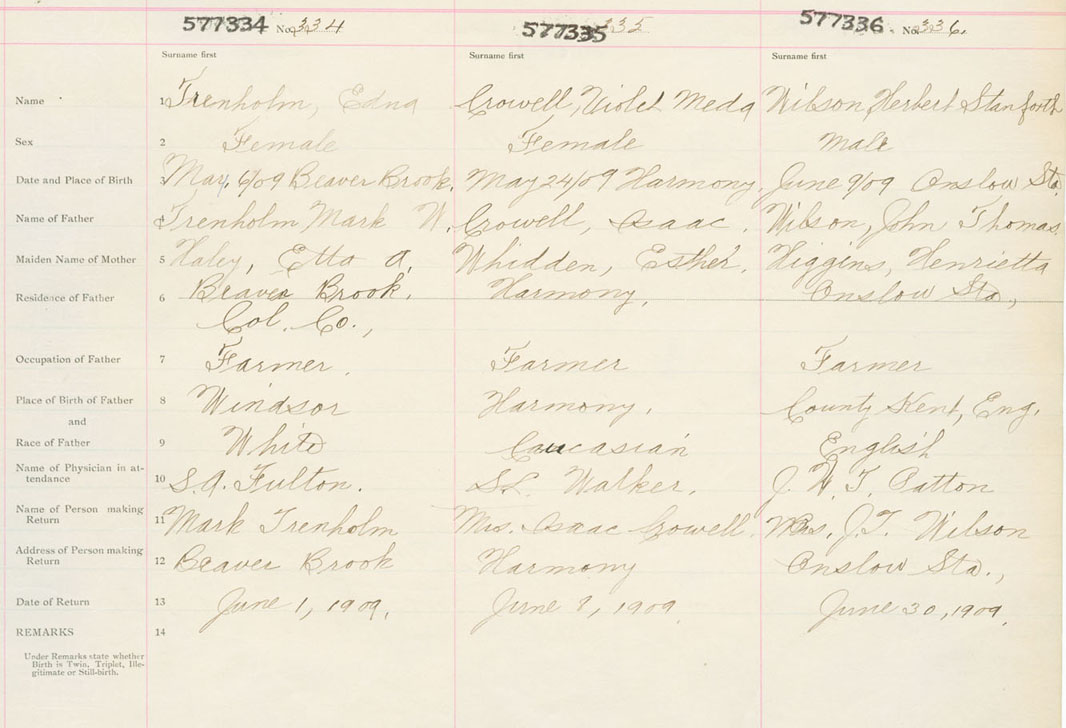 577334 No. 334 577335 335 577336 No. 336.
Surname first Surname first Surname first
Name 1 Trenholm, Edna Crowell, Violet Meda Wilson, Herbert Stanforth
Sex 2 Female Female Male
Date and Place of Birth 3 May, 6/09 Beaver Brook. May 24/09 Harmony. June 9/09 Onslow Sta.
Name of Father 4 Trenholm Mark W. Crowell, Isaac. Wilson, John Thomas.
Maiden Name of Mother 5 Haley, Etta A. Whidden, Esther. Higgins, Henrietta
Residence of Father 6 Beaver Brook. Harmony. Onslow Sta.,
Col. Co.,
Occupation of Father 7 Farmer. Farmer Farmer
Place of Birth of Father 8 Windsor Harmony. County Kent, Eng.
and
Race of Father 9 White Caucasian English
Name of Physician in at-
tendance 10 S.A. Fulton. S.L. Walker. J. W. T. Patton
Name of Person making
Return 11 Mark Trenholm Mrs. Isaac Crowell. Mrs. J.T. Wilson
Address of Person making
Return 12 Beaver Brook Harmony Onslow Sta.,
Date of Return 13 June 1, 1909. June 8, 1909. June 30, 1909.
REMARKS 14
Under Remarks state whether
Birth is Twin, Triplet, Ille-
gitimate or Still-birth.